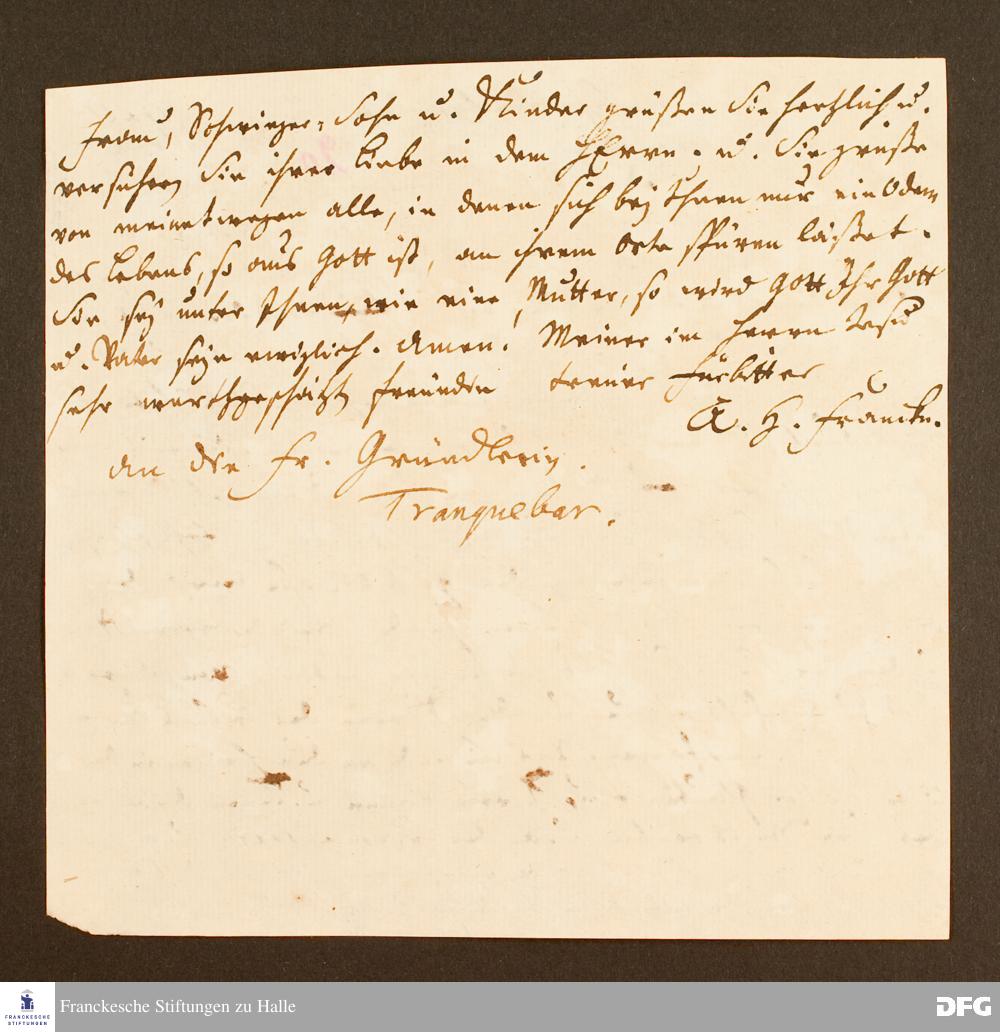 Frau, Schwieger-Sohn u. Kinder grüßen Sie hertzlich u.
versichern Sie ihrer Liebe in dem HErrn. u. Sie grüße
von meinetwegen alle, in denen sich bey Ihnen nur ein Odem
des Lebens, so aus Gott ist, an ihrem Orte spüren läßet.
Sie sey unter Ihnen, wie eine Mutter, so wird Gott Ihr Gott
u. Vater seyn ewiglich. Amen! Meiner im Herrn Jesu
sehr werthgeschätzten Freundin treuer Fürbitter
A. H. Francke.
An die Fr. Gründlerin.
Tranquebar.
FRANCKESCHE
STIFTUNGEN
Franckesche Stiftungen zu Halle
DFG